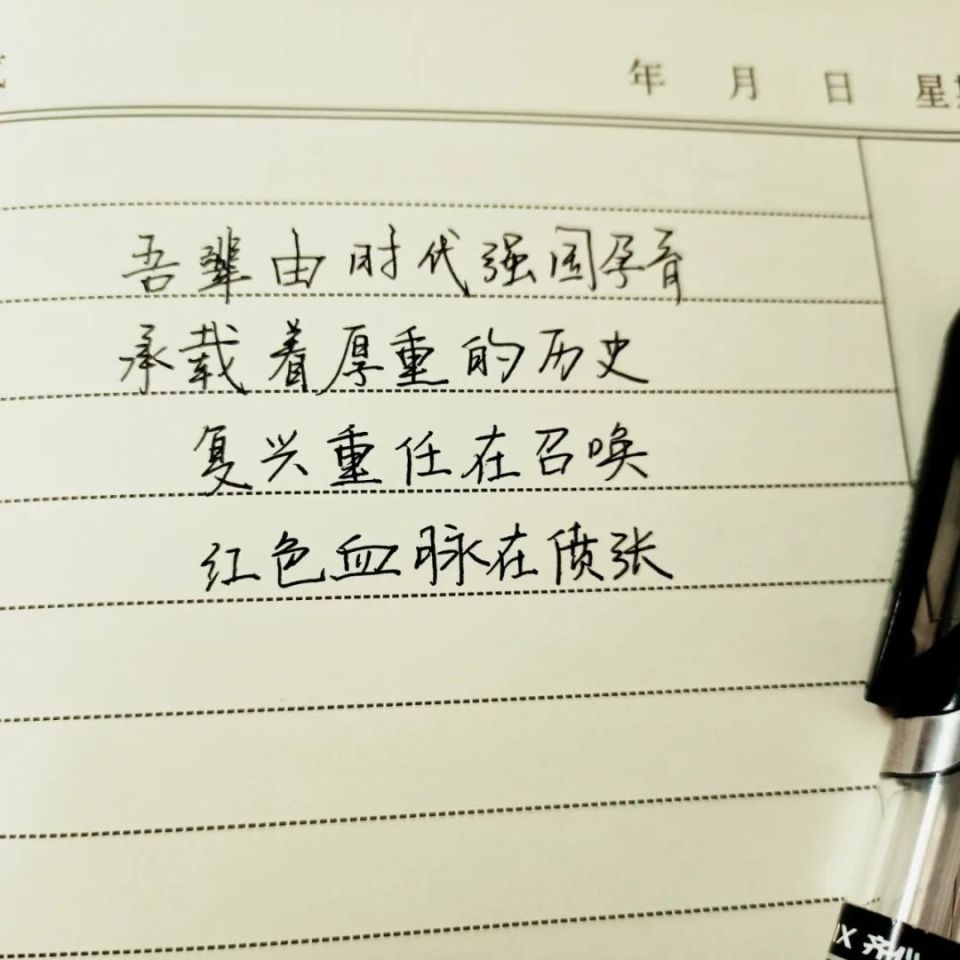 年 月 日 星
吾辈由时代强国孕育
承载着厚重的历史
复兴重任在召唤
红色血脉在偾张